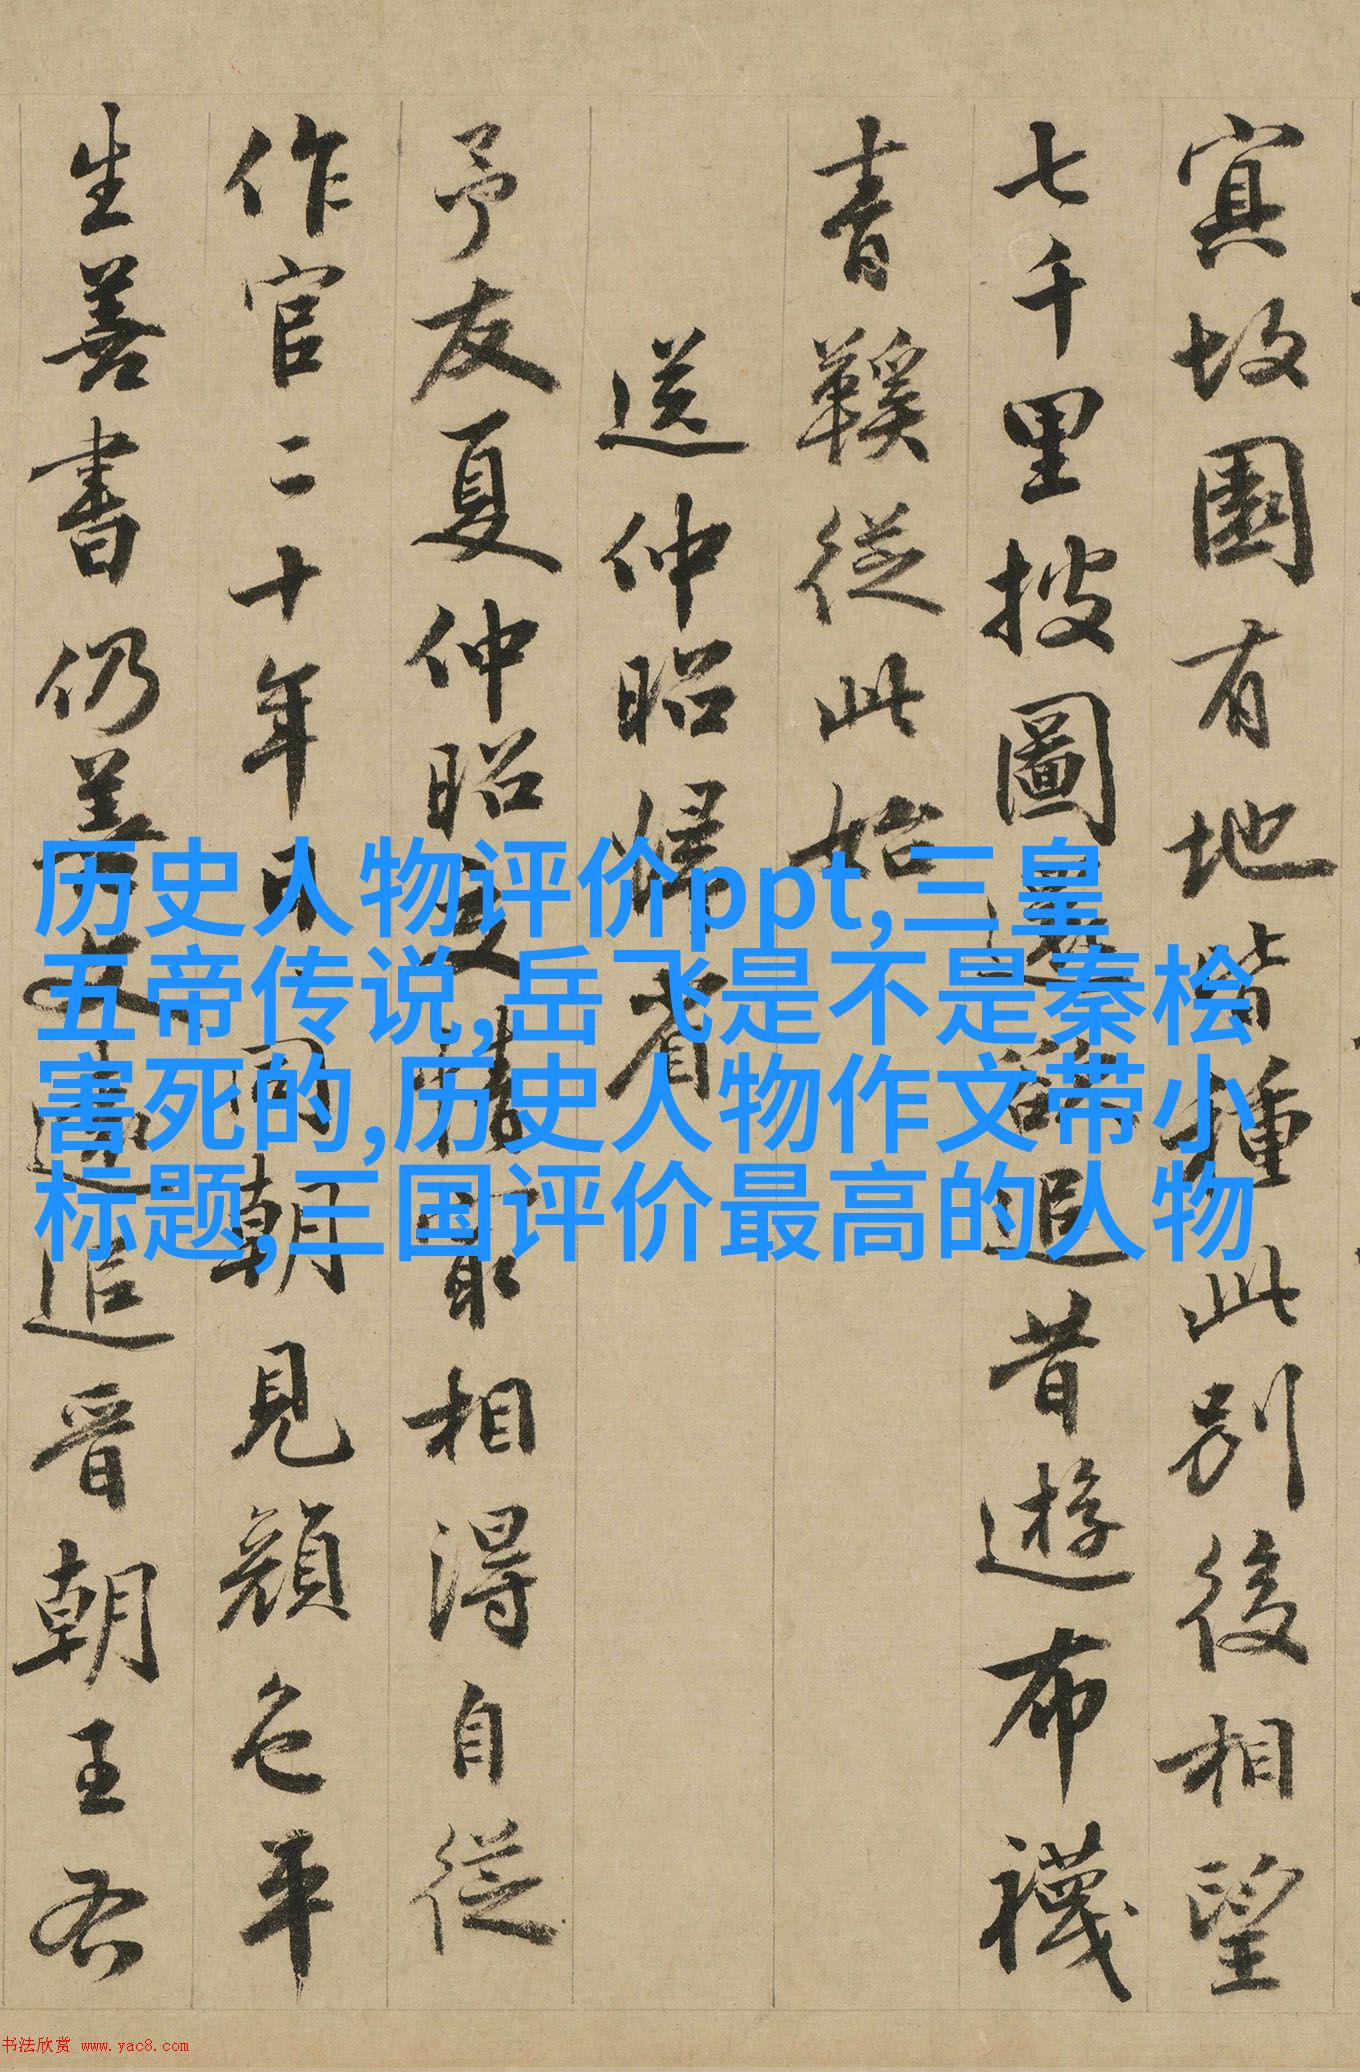 寘故園有地皆種此別後相望
七千里披圖還欲追昔遊布襪
青鞵從此始
送仲昭歸省
予友夏仲昭交情最相得自從
作官二十年日日同朝見顏色平
生善書仍善文遠追晉朝王右
历史人物评价ppt,三皇
五帝传说,岳飞是不是秦桧
害死的,历史人物作文带小
标题,三国评价最高的人物
书法欣赏 www.yac8.com